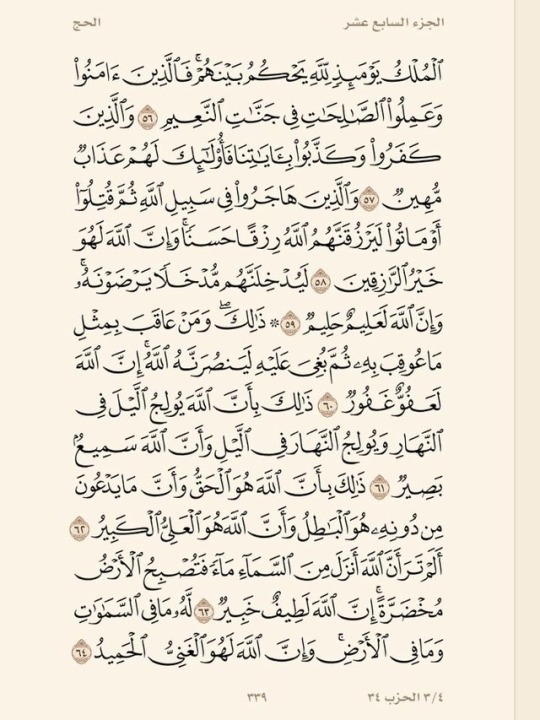 الجزء السابع عشر
الحج
ٱلۡمُلۡكُ يَوۡمَئِذٖ لِّلَّهِ يَحۡكُمُ بَيۡنَهُمۡۚ فَٱلَّذِينَ ءَامَنُواْ
وَعَمِلُواْ ٱلصَّٰلِحَٰتِ فِي جَنَّٰتِ ٱلنَّعِيمِ ٥٦ وَٱلَّذِينَ
كَفَرُواْ وَكَذَّبُواْ بِـَٔايَٰتِنَا فَأُوْلَٰٓئِكَ لَهُمۡ عَذَابٞ
مُّهِينٞ ٥٧ وَٱلَّذِينَ هَاجَرُواْ فِي سَبِيلِ ٱللَّهِ ثُمَّ قُتِلُوٓاْ
أَوۡ مَاتُواْ لَيَرۡزُقَنَّهُمُ ٱللَّهُ رِزۡقًا حَسَنٗاۚ وَإِنَّ ٱللَّهَ لَهُوَ
خَيۡرُ ٱلرَّٰزِقِينَ ٥٨ لَيُدۡخِلَنَّهُم مُّدۡخَلٗا يَرۡضَوۡنَهُۥۚ
وَإِنَّ ٱللَّهَ لَعَلِيمٌ حَلِيمٞ ٥٩ ۞ ذَٰلِكَۖ وَمَنۡ عَاقَبَ بِمِثۡلِ
مَا عُوقِبَ بِهِۦ ثُمَّ بُغِيَ عَلَيۡهِ لَيَنصُرَنَّهُ ٱللَّهُۚ إِنَّ ٱللَّهَ
لَعَفُوٌّ غَفُورٞ ٦٠ ذَٰلِكَ بِأَنَّ ٱللَّهَ يُولِجُ ٱلَّيۡلَ فِي
ٱلنَّهَارِ وَيُولِجُ ٱلنَّهَارَ فِي ٱلَّيۡلِ وَأَنَّ ٱللَّهَ سَمِيعُۢ
بَصِيرٞ ٦١ ذَٰلِكَ بِأَنَّ ٱللَّهَ هُوَ ٱلۡحَقُّ وَأَنَّ مَا يَدۡعُونَ
مِن دُونِهِۦ هُوَ ٱلۡبَٰطِلُ وَأَنَّ ٱللَّهَ هُوَ ٱلۡعَلِيُّ ٱلۡكَبِيرُ ٦٢
أَلَمۡ تَرَ أَنَّ ٱللَّهَ أَنزَلَ مِنَ ٱلسَّمَآءِ مَآءٗ فَتُصۡبِحُ ٱلۡأَرۡضُ
مُخۡضَرَّةًۚ إِنَّ ٱللَّهَ لَطِيفٌ خَبِيرٞ ٦٣ لَّهُۥ مَا فِي ٱلسَّمَٰوَٰتِ
وَمَا فِي ٱلۡأَرۡضِۚ وَإِنَّ ٱللَّهَ لَهُوَ ٱلۡغَنِيُّ ٱلۡحَمِيدُ ٦٤
٣/٤ الحزب ٣٤
٣٣٩